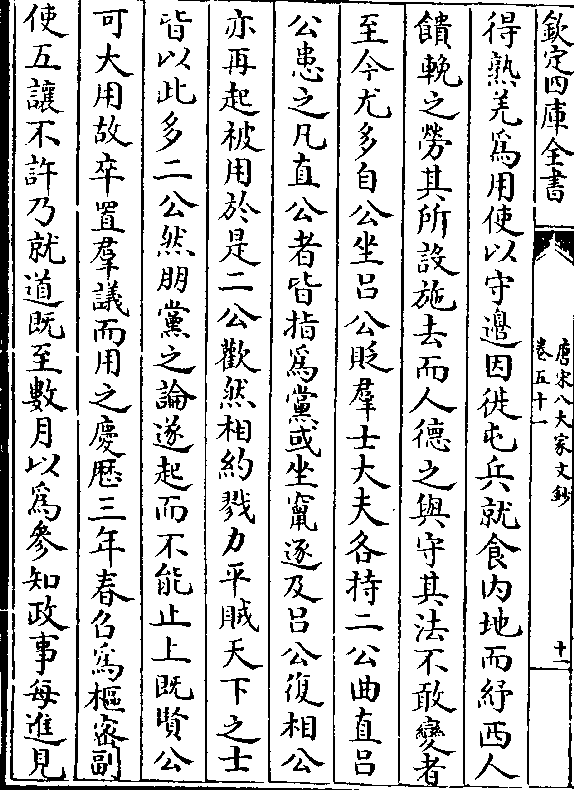 欽定四庫全書
唐宋八大家文鈔
卷五十一
十一
得熟羌爲用使以守邊因徙屯兵就食内地而紓西人
饋輓之勞其所設施去而人德之與守其法不敢變者
至今尤多自公坐呂公貶羣士大夫各持二公曲直呂
公患之凡直公者皆指爲黨或坐竄逐及呂公復相公
亦再起被用於是二公歡然相約戮力平賊天下之士
皆以此多二公然朋黨之論遂起而不能止上既賢公
可大用故卒置羣議而用之慶歴三年春召爲樞密副
使五讓不許乃就道既至數月以爲參知政事每進見